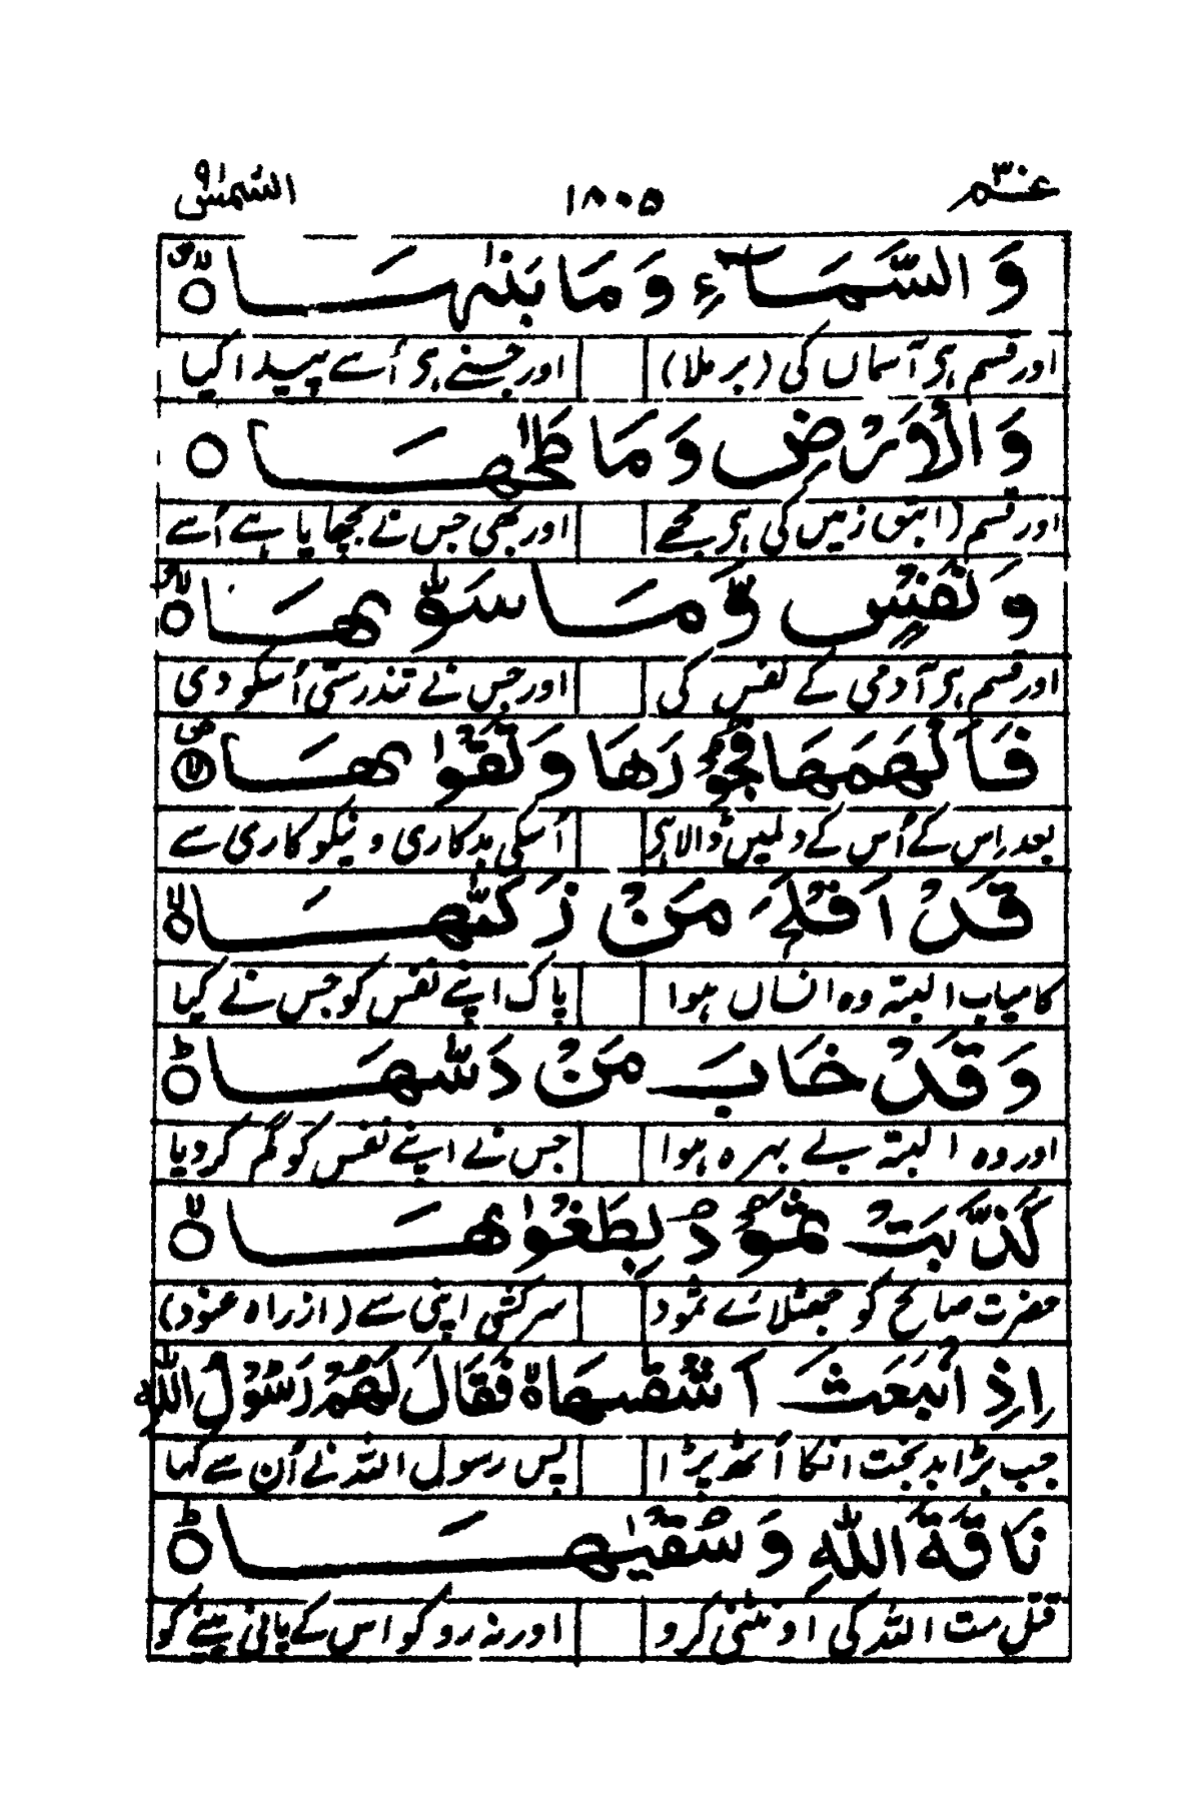 عم ٣٠ ١٨٠٥ الشمس ٩١
وَالسَّمَآءِ وَمَا بَنٰىهَا ۝
اور قسم ہی آسماں کی (برملا) اور جسنے ہی اُسے پیدا کیا
وَالْاَرْضِ وَمَا طَحٰىهَا ۝
اور قسم (ابتو زمیں کی ہی مجھے اور بھی جس نے بچھایا ہے اُسے
وَنَفْسٍ وَّمَا سَوّٰىهَا ۝
اور قسم ہی آدمی کے نفس کی اور جس نے تندرستی اُسکو دی
فَاَلْهَمَهَا فُجُوْرَهَا وَتَقْوٰىهَا ۝
بعد اِس کے اُس کے دلمیں ڈالا ہی اُسکی بدکاری و نیکوکاری سے
قَدْ اَفْلَحَ مَنْ زَكّٰىهَا ۝
کامیاب البتہ وہ انساں ہوا پاک اپنے نفس کو جس نے کیا
وَقَدْ خَابَ مَنْ دَسّٰىهَا ۝
اور وہ البتہ بے بہرہ ہوا جس نے اپنے نفس کو گم کردیا
كَذَّبَتْ ثَمُوْدُ بِطَغْوٰىهَا ۝
حضرت صالح کو جھٹلائے ثمود سرکشی اپنی سے (از راہ عنود)
اِذِ انْۢبَعَثَ اَشْقٰىهَا ۝ فَقَالَ لَهُمْ رَسُوْلُ اللّٰهِ
جب بڑا بدبخت انکا اُٹھ پڑا پس رسول اللہ نے اُن سے کہا
نَاقَةَ اللّٰهِ وَسُقْيٰهَا ۝
قتل مت اللہ کی اونٹنی کرو اور نہ روکو اس کے پانی پینے کو